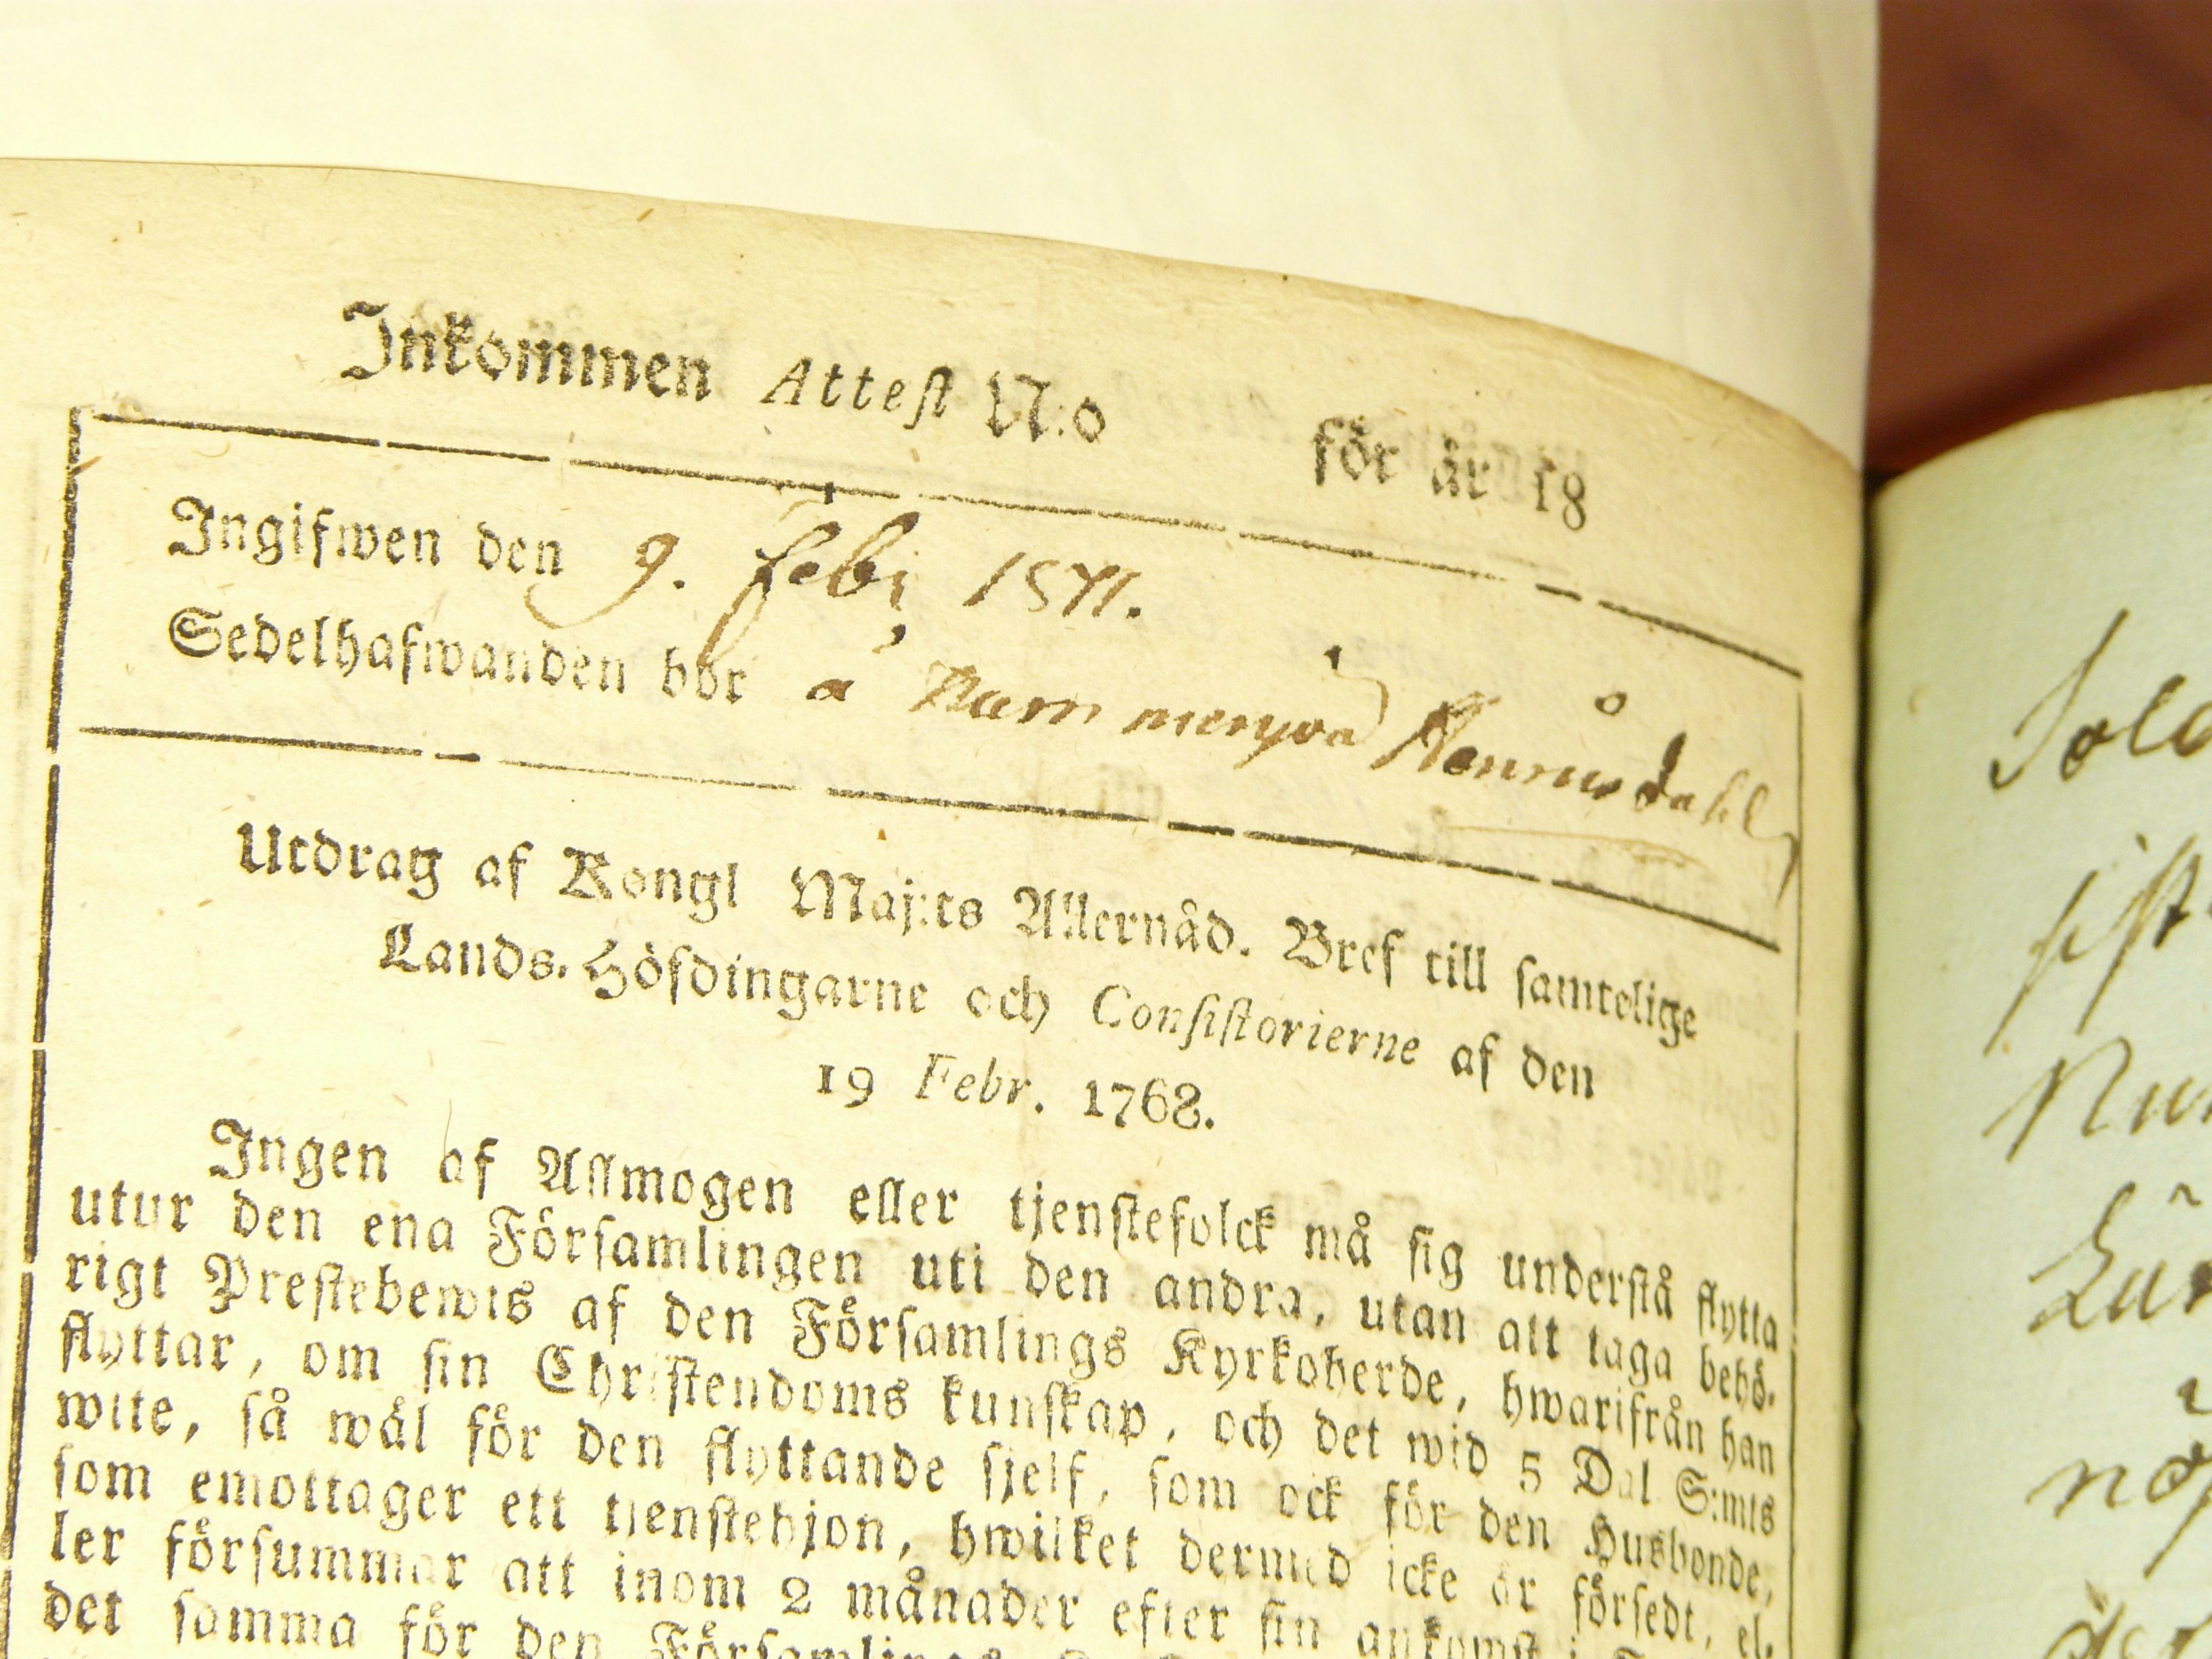 Inkommen Attest N:o för år 18
Ingifwen den 9. Feb
Sedelhafwanden bor å
Utdrag af Kongl Maj:ts Allernåd. Bref till samtelige
Lands-Höfdingarne och Consistorierne af den
19 Febr. 1768.
Ingen af Allmogen eller tjenstefolck må sig understå flytta
utur den ena Församlingen uti den andra, utan att taga behö-
rigt Prestebewis af den Församlings Kyrkoherde, hwarifrån han
flyttar, om sin Christendoms kunskap, och det wid 5 Dal S:mts
wite, så wäl för den flyttande sjelf, som ock för den Husbonde,
som emottager ett tjenstehjon, hwilket dermed icke är försedt, el-
ler försummar att inom 2 månader efter sin ankomst i
det samma för den Församlings
Sold
sist
Num